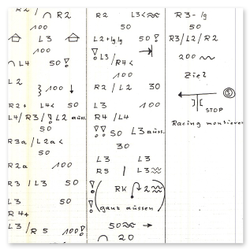 R2
100
L3
100
L4 50!
L2
100
R2+ L4< 50
L4/R3/L2 auss.
50
R3a/L2a<
50
R2a 100
R3/L3 50
L3 50
R4+
L3/R5 100
R2 L3<
50
L2+
L3/R4<
100
R2/L2 30
100
R4/L4
50 L3 auss.
30
L3 L3
R5 L3
RK 2
(ganz aussen)
50
20
R3-
50
R3/L2/R2
200
Ziel
STOP
Racing montieren